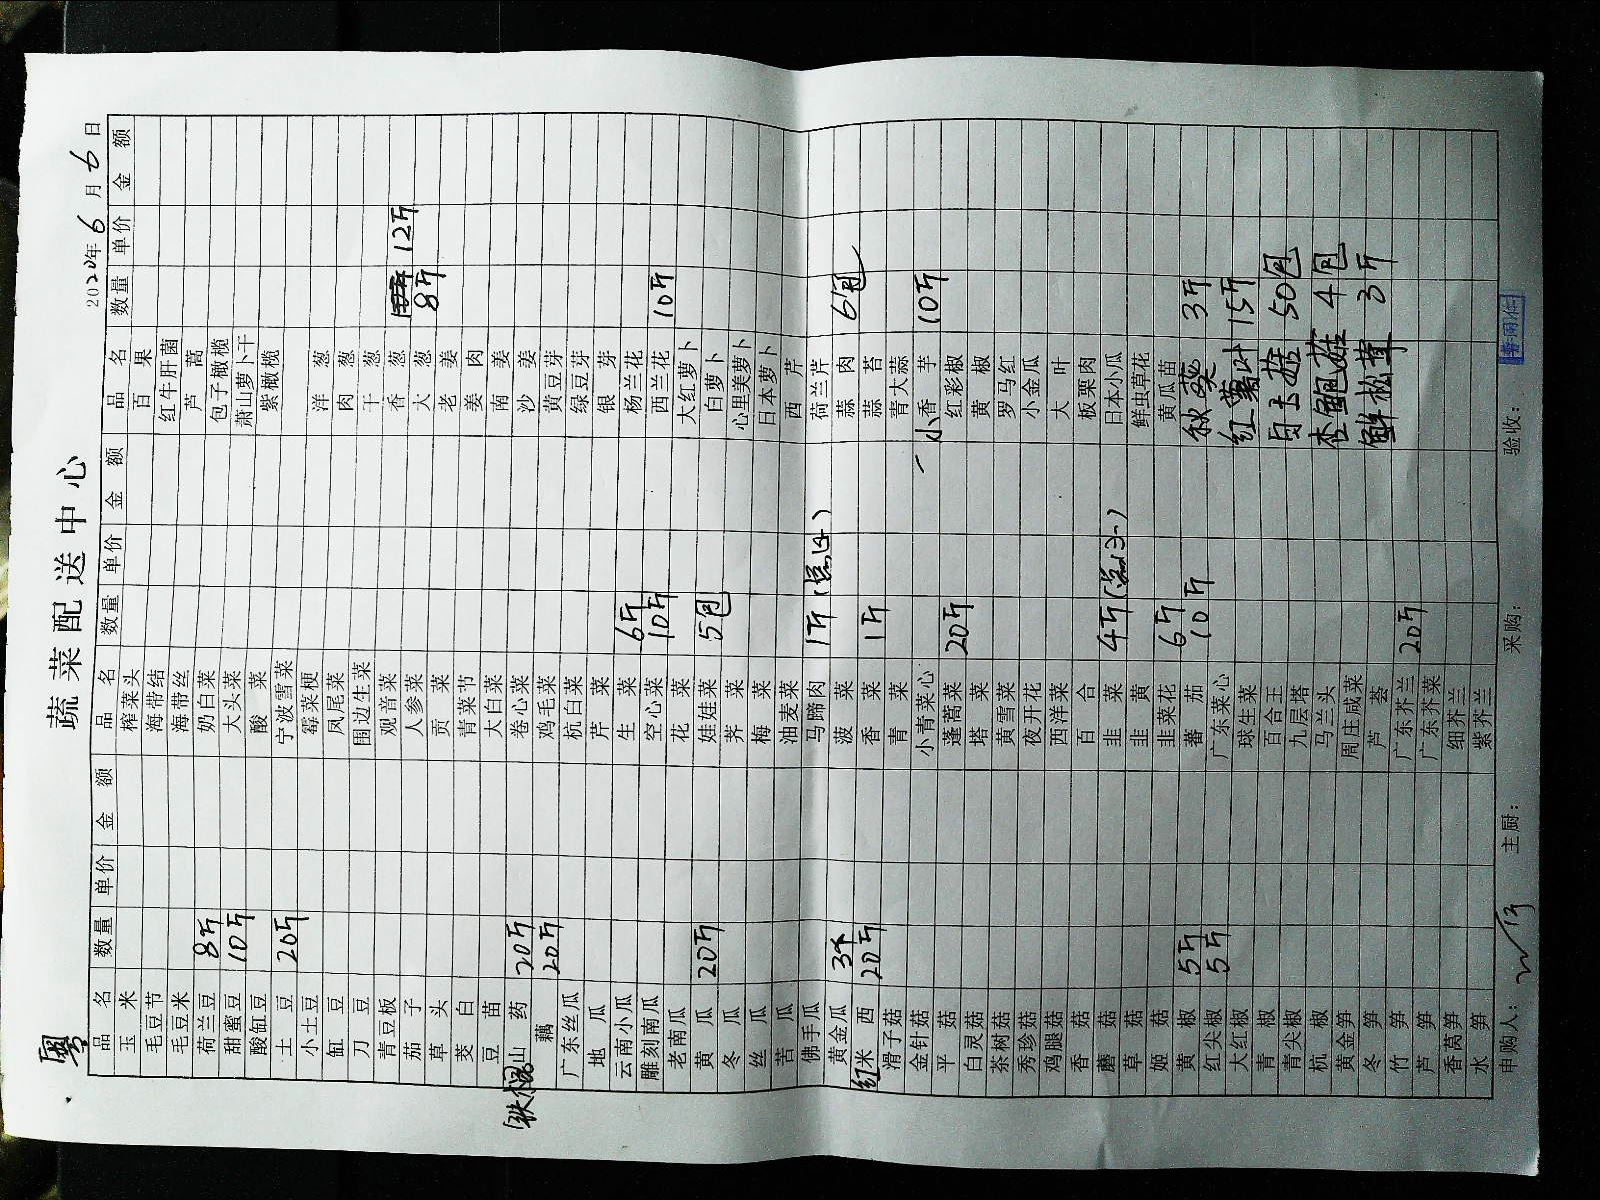 粤
蔬菜配送中心
2020年6月6日
品名 数量 单价 金额 品名 数量 单价 金额 品名 数量 单价 金额
玉米 榨菜头 百果
毛豆节 海带结 红牛肝菌
毛豆米 海带丝 芦蒿
荷兰豆 8斤 奶白菜 包子橄榄
甜蜜豆 10斤 大头菜 萧山萝卜干
酸缸豆 酸菜 紫橄榄
土豆 20斤 宁波雪菜
小土豆 霉菜梗 洋葱
缸豆 凤尾菜 肉葱
刀豆 围边生菜 干葱
青豆板 观音菜 香葱 12斤
茄子 人参菜 大葱 8斤
草头 贡菜 老姜
茭白 青菜节 姜肉
豆苗 大白菜 南姜
(铁棍)山药 20斤 卷心菜 沙姜
藕 20斤 鸡毛菜 黄豆芽
广东丝瓜 杭白菜 绿豆芽
地瓜 芹菜 银芽
云南小瓜 生菜 6斤 杨兰花
雕刻南瓜 空心菜 10斤 西兰花 10斤
老南瓜 花菜 大红萝卜
黄瓜 20斤 娃娃菜 5包 白萝卜
冬瓜 荠菜 心里美萝卜
丝瓜 梅菜 日本萝卜
苦瓜 油麦菜 西芹
佛手瓜 马蹄肉 1斤 荷兰芹
黄金瓜 3个 菠菜 蒜肉 6包
红米西 20斤 香菜 1斤 蒜苔
滑子菇 青菜 青大蒜
金针菇 小青菜心 小香芋 10斤
平菇 蓬蒿菜 20斤 红彩椒
白灵菇 塔菜 黄椒
茶树菇 黄雪菜 罗马红
秀珍菇 夜开花 小金瓜
鸡腿菇 西洋菜 大叶
香菇 百合 板栗肉
蘑菇 韭菜 4斤 日本小瓜
草菇 韭黄 鲜虫草花
姬菇 韭菜花 6斤 黄瓜苗
黄椒 5斤 蕃茄 10斤 秋葵 3斤
红尖椒 5斤 广东菜心
大红椒 球生菜 红薯叶 15斤
青椒 百合王 白玉菇 50包
青尖椒 九层塔
杭椒 马兰头 杏鲍菇 4包
黄金笋 周庄咸菜
冬笋 芦荟 鲜松茸 3斤
竹笋 广东芥兰 20斤
芦笋 广东芥菜
香莴笋 细芥兰
水笋 紫芥兰
申购人： 主厨： 采购： 验收：